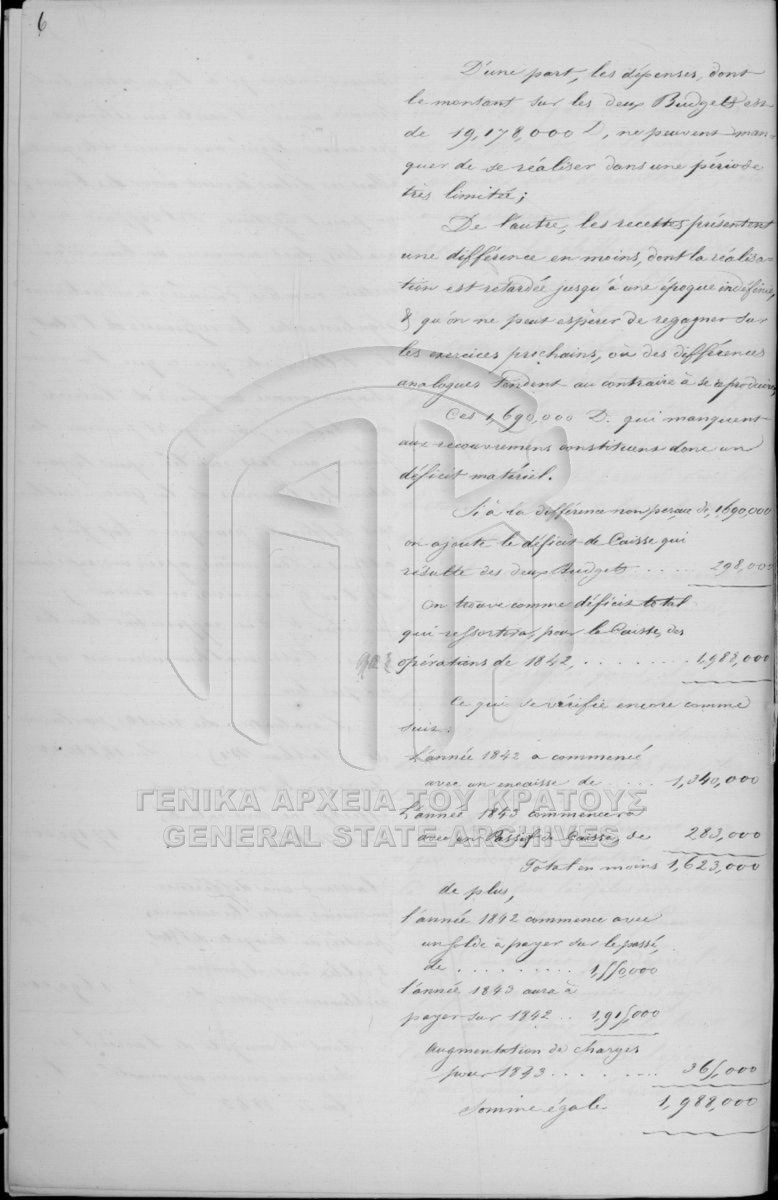 6
D'une part, les dépenses, dont
le montant sur les deux Budgets est
de 19,178,000 D, ne peuvent man-
quer de se réaliser dans une période
très limitée;
De l'autre, les recettes présentent
une différence en moins, dont la réalisa-
tion est retardée jusqu'à une époque indéfinie,
& qu'on ne peut espérer de regagner sur
les exercices prochains, où des différences
analogues tendent au contraire à se reproduire,
Ces 1,690,000 D. qui manquent
aux recouvremens constituent donc un
déficit matériel.
Si à la différence non perçue de 1,690,000
on ajoute le déficit de Caisse qui
résulte des deux Budgets ..... 298,000
On trouve comme déficit total
qui ressortira, pour la Caisse, des
opérations de 1842, ........ 1,988,000
Ce qui se vérifie encore comme
suit:
L'année 1842 a commencé
avec un encaisse de .... 1,340,000
ΓΕΝΙΚΑ ΑΡΧΕΙΑ ΤΟΥ ΚΡΑΤΟΥΣ
L'année 1843 commencera
GENERAL STATE ARCHIVES
avec un Passif de Caisse, de 283,000
Total en moins 1,623,000
de plus,
l'année 1842 commence avec
un solde à payer sur le passé,
de .......... 1,550,000
l'année 1843 aura à
payer sur 1842 .. 1,915,000
Augmentation de charges
pour 1843 ........ 365,000
Somme égale 1,988,000